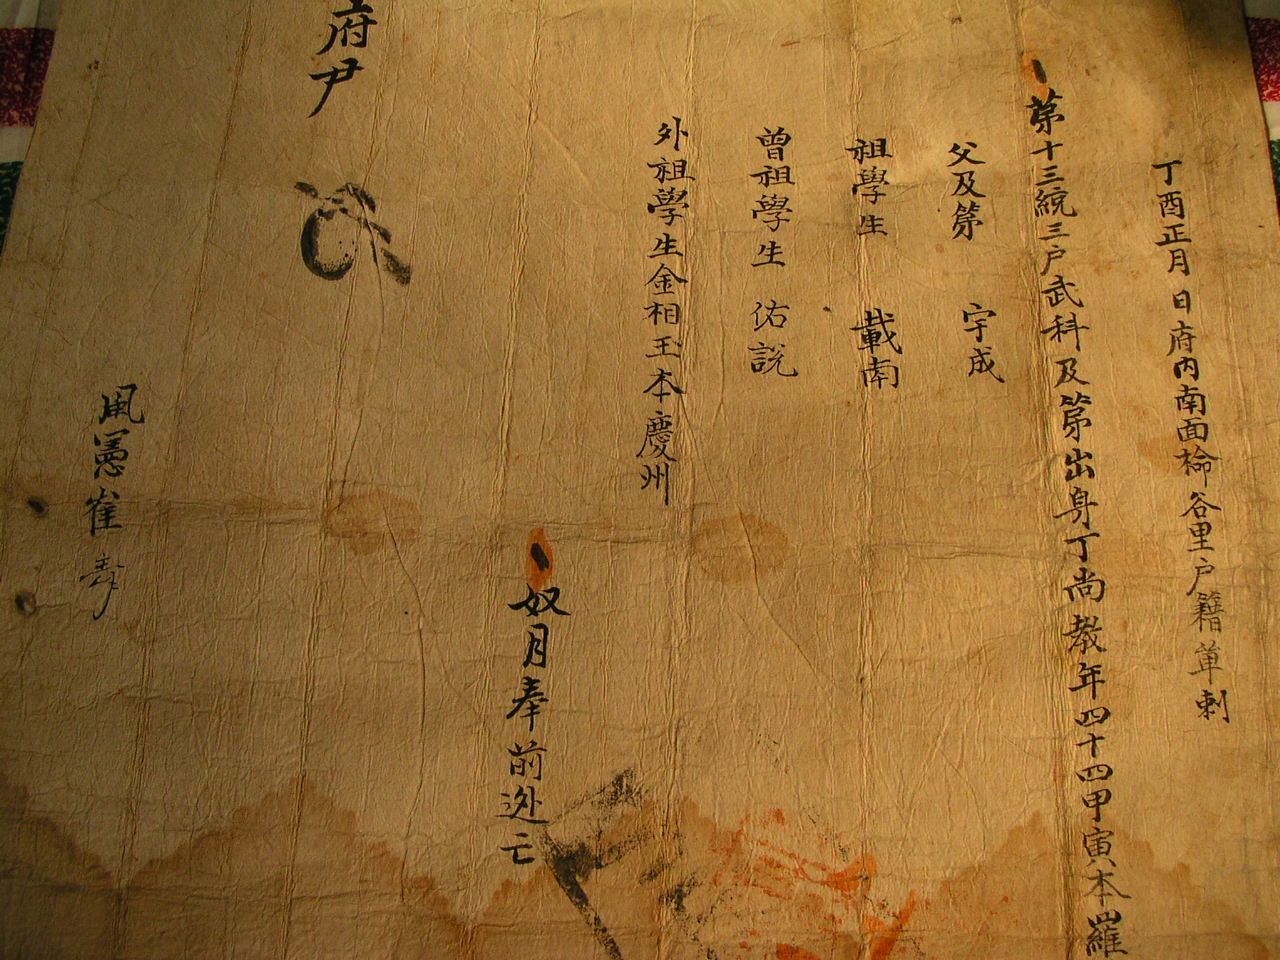 丁酉正月 日府內南面檜谷里戶籍單刺
第十三統三戶武科及第出身丁尚敎年四十四甲寅本羅
父及第 宇成
祖學生 載南
曾祖學生 佑說
外祖學生金相玉本慶州
奴月奉前迯亡
府尹
風憲崔